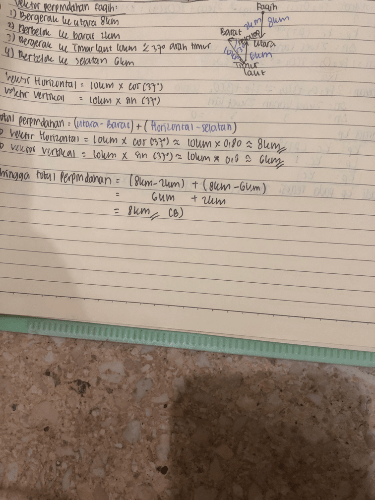 Vektor perpindahan Faqih:
1) Bergerak ke utara 8km
2) Berbelok ke barat 2km
3) Bergerak ke Timur laut 10km ± 37° arah timur
4) Berbelok ke selatan 6km
Faqih
2km
8km
Barat
Utara
6km
Timur
laut
Vektor Horizontal = 10km x cos(37°)
Vektor Vertical = 10km x sin (37°)
Total perpindahan = (Utara-Barat) + (Horizontal-selatan)
Vektor Horizontal = 10km x cos (37°) ≈ 10km x 0,80 ≈ 8km
Vektor Vertical = 10km x sin (37°) ≈ 10km x 0,6 ≈ 6km
Sehingga total Perpindahan = (8km-2km) + (8km-6km)
= 6km + 2km
= 8km (B)